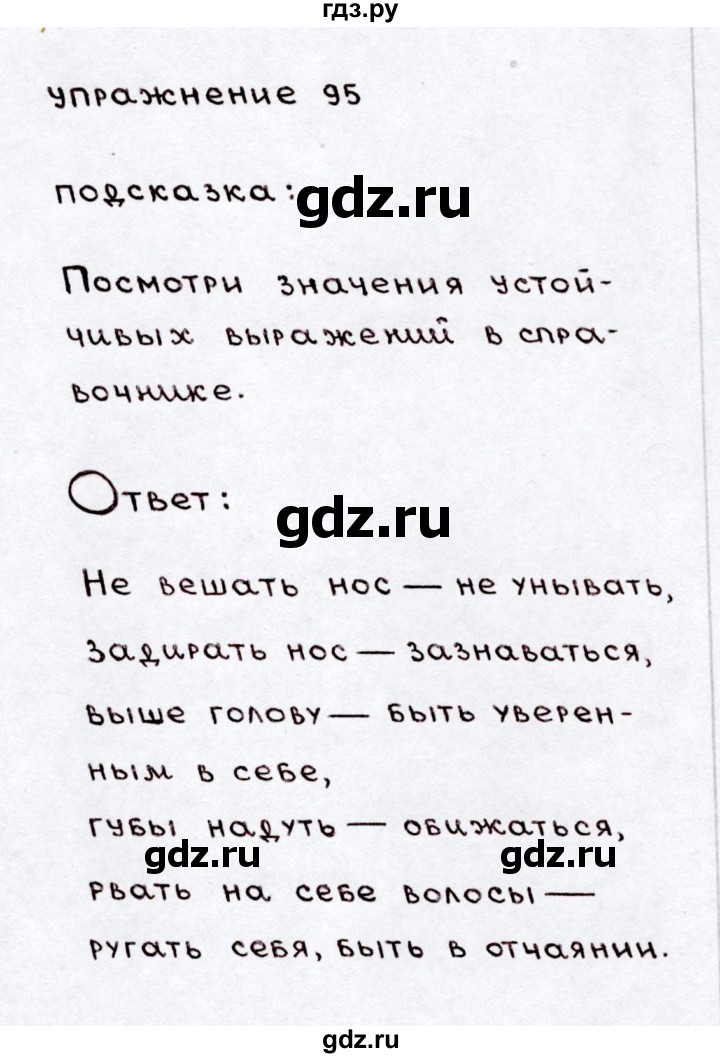 гдз.ру
упражнение 95
подсказка:
gdz.ru
Посмотри значения устой-
чивых выражений в спра-
вочнике.
Ответ:
gdz.ru
Не вешать нос — не унывать,
задирать нос — зазнаваться,
выше голову — быть уверен-
ным в себе,
губы надуть — обижаться,
gdz.ru gdz.ru
рвать на себе волосы —
ругать себя, быть в отчаянии.
gdz.ru